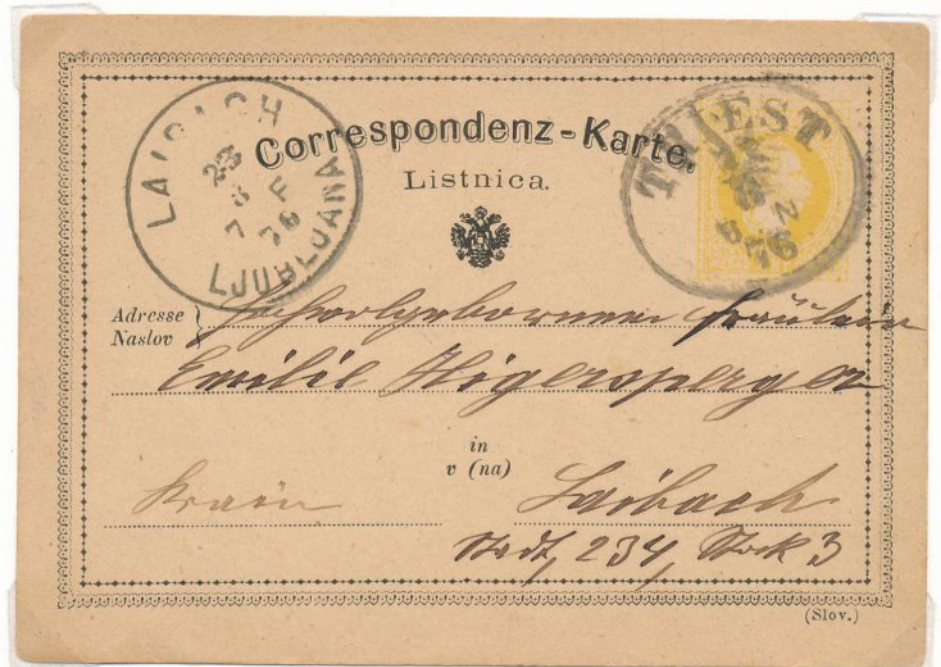 LAIBACH
23
3
7 F
76
LJUBLJANA
TRIEST
76
Correspondenz-Karte.
Listnica.
Adresse
Naslov
Hochwohlgebornen Fräulein
Emilie
in
v (na)
Krain
Laibach
Stadt, 234, Stock 3
(Slov.)